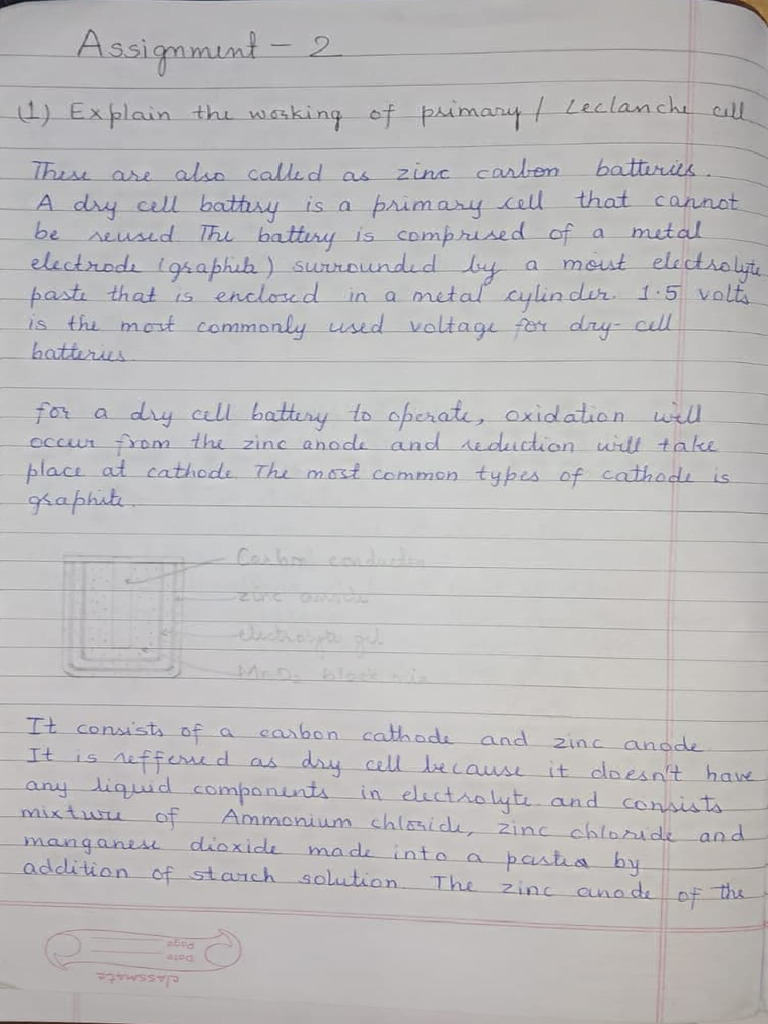 Assignment - 2
(1) Explain the working of primary / Leclanche cell
These are also called as zinc carbon batteries.
A dry cell battery is a primary cell that cannot
be reused The battery is comprised of a metal
electrode (graphite) surrounded by a moist electrolyte
paste that is enclosed in a metal cylinder. 1.5 volts
is the most commonly used voltage for dry-cell
batteries.
for a dry cell battery to operate, oxidation will
occur from the zinc anode and reduction will take
place at cathode. The most common types of cathode is
graphite.
Carbon conductor
zinc anode
electrolyte gel
MnO2 block mix
It consists of a carbon cathode and zinc anode
It is reffered as dry cell because it doesn't have
any liquid components in electrolyte and consists
mixture of Ammonium chloride, zinc chloride and
manganese dioxide made into a paste by
addition of starch solution. The zinc anode of the
classmate
Date
Page